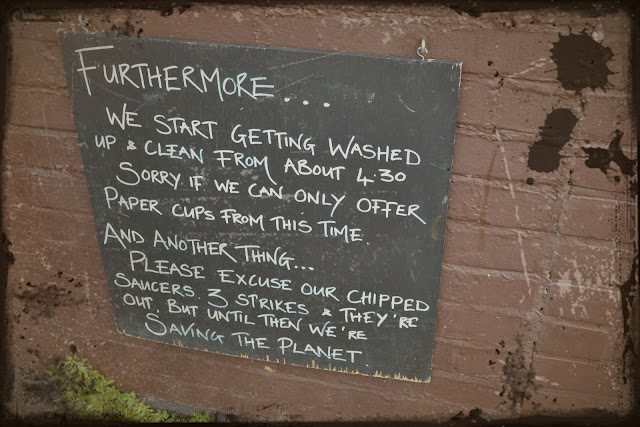 FURTHERMORE...
WE START GETTING WASHED
UP & CLEAN FROM ABOUT 4.30
SORRY IF WE CAN ONLY OFFER
PAPER CUPS FROM THIS TIME.
AND ANOTHER THING...
PLEASE EXCUSE OUR CHIPPED
SAUCERS. 3 STRIKES & THEY'RE
OUT. BUT UNTIL THEN WE'RE
SAVING THE PLANET.